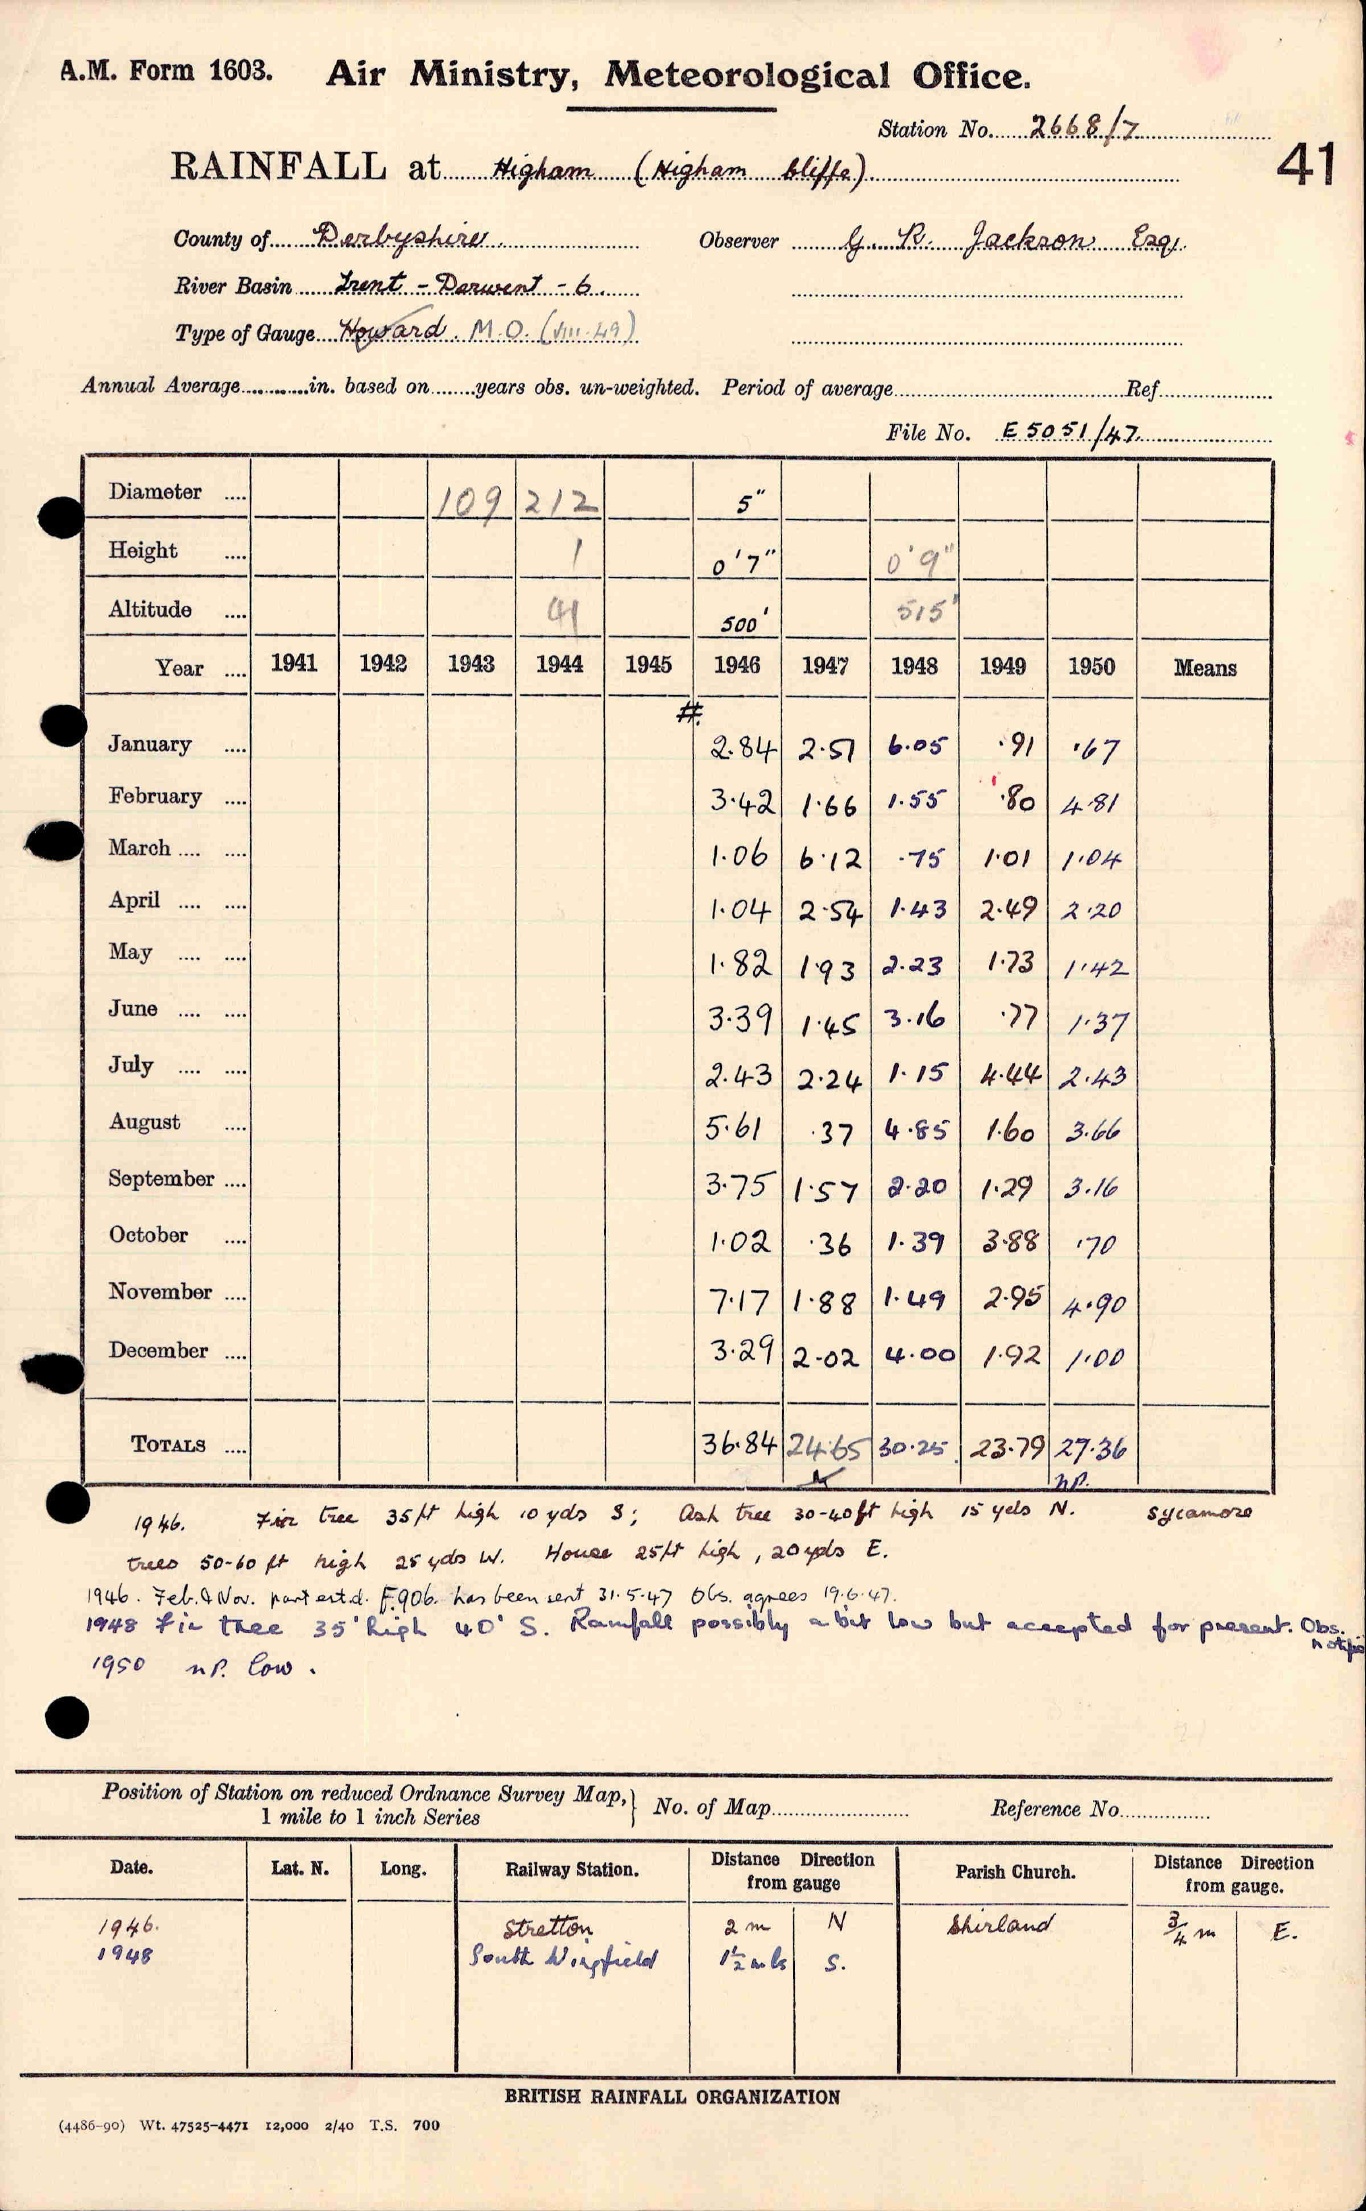 A.M. Form 1603. Air Ministry, Meteorological Office.
Station No. 2668/7
41
RAINFALL at Higham (Higham Cliffe)
County of Derbyshire. Observer G. R. Jackson Esq.
River Basin Trent - Derwent - 6.
Type of Gauge Howard. M.O. (VIII.49)
Annual Average in. based on years obs. un-weighted. Period of average Ref
File No. E5051/47
Diameter .... 109 212 5"
Height .... 1 0'7" 0'9"
Altitude .... 41 500' 515'
Year .... 1941 1942 1943 1944 1945 1946 1947 1948 1949 1950 Means
#.
January .... 2.84 2.51 6.05 .91 .67
February .... 3.42 1.66 1.55 .80 4.81
March .... .... 1.06 6.12 .75 1.01 1.04
April .... .... 1.04 2.54 1.43 2.49 2.20
May .... .... 1.82 1.93 2.23 1.73 1.42
June .... .... 3.39 1.45 3.16 .77 1.37
July .... .... 2.43 2.24 1.15 4.44 2.43
August .... 5.61 .37 4.85 1.60 3.66
September .... 3.75 1.57 2.20 1.29 3.16
October .... 1.02 .36 1.39 3.88 .70
November .... 7.17 1.88 1.49 2.95 4.90
December .... 3.29 2.02 4.00 1.92 1.00
TOTALS .... 36.84 24.65 30.25 23.79 27.36
np.
1946. Fir tree 35ft high 10 yds S; Ash tree 30-40ft high 15 yds N. Sycamore
trees 50-60 ft high 25 yds W. House 25ft high, 20 yds E.
1946. Feb. & Nov. part estd. F.906. has been sent 31.5.47 Obs. agrees 19.6.47.
1948 Fir tree 35' high 40' S. Rainfall possibly a bit low but accepted for present. Obs.
1950 np. low.
Position of Station on reduced Ordnance Survey Map,} No. of Map Reference No.
1 mile to 1 inch Series
Date. Lat. N. Long. Railway Station. Distance Direction from gauge Parish Church. Distance Direction from gauge.
1946. Stretton 2 m N Shirland 3/4 m E.
1948 South Wingfield 1 1/2 mls S.
BRITISH RAINFALL ORGANIZATION
(4486-90) Wt. 47525-4471 12,000 2/40 T.S. 700